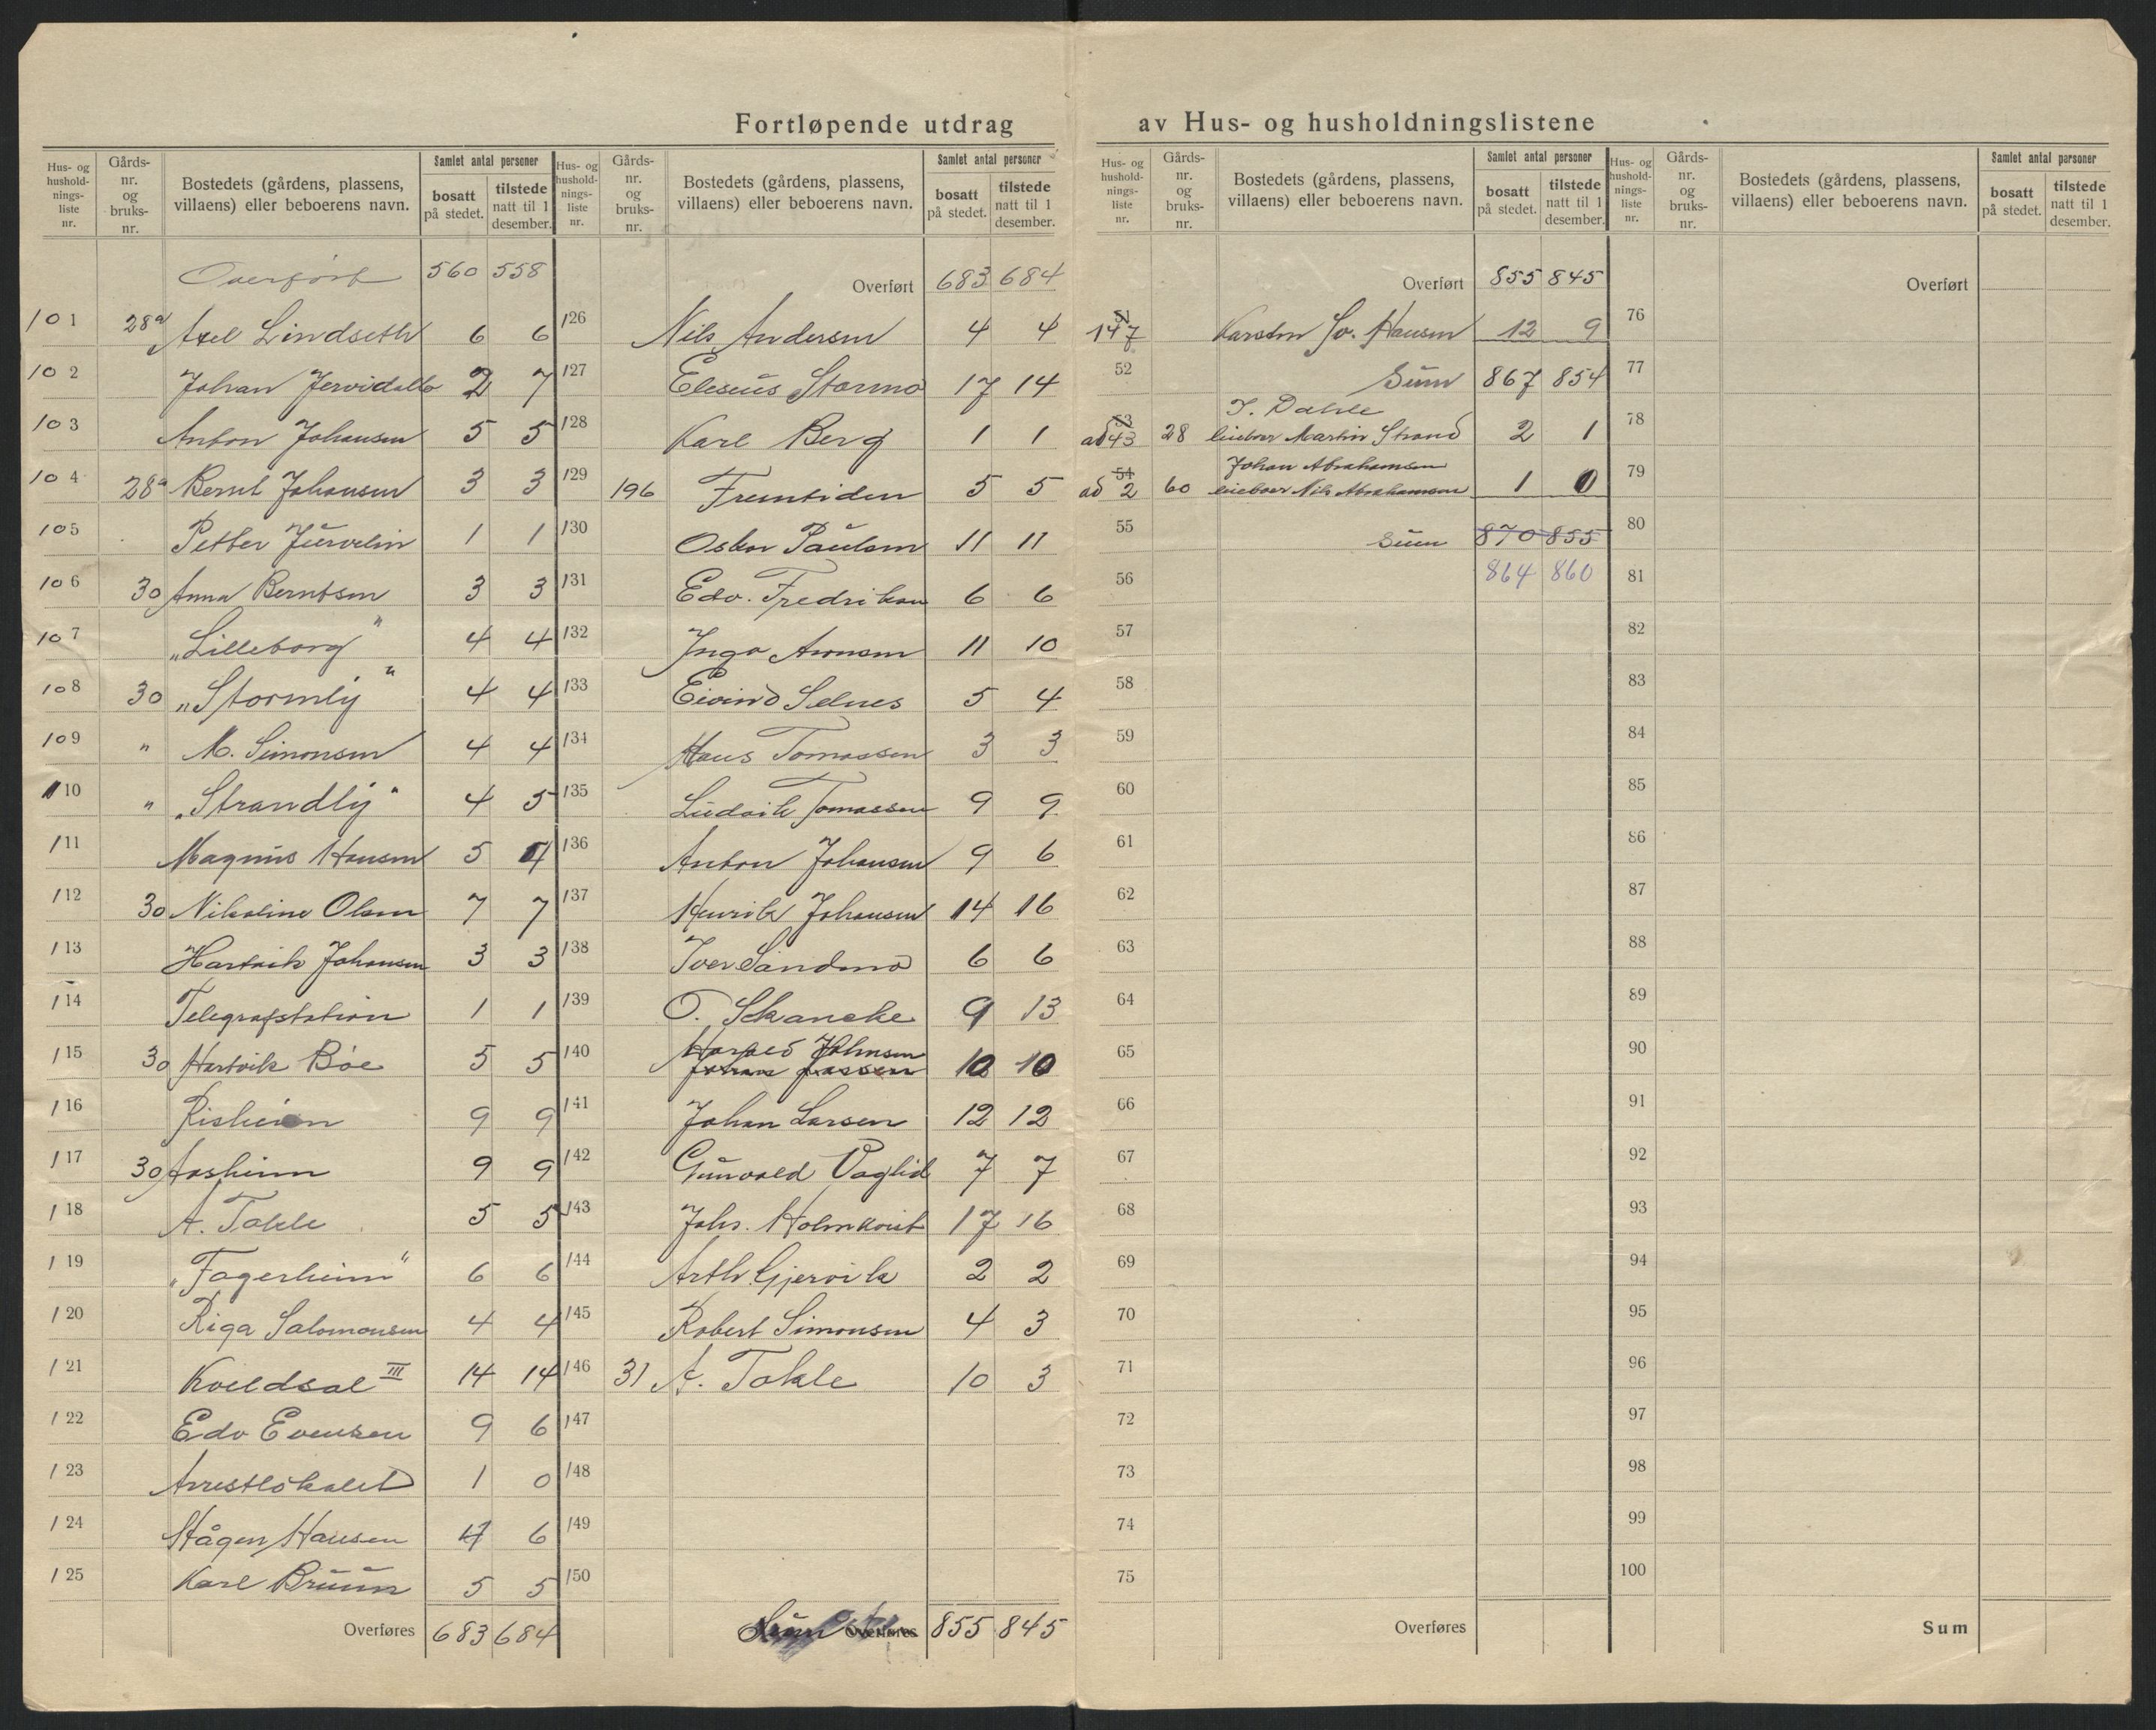 Fortløpende utdrag av Hus- og husholdningslistene
Hus- og hushold-nings-liste nr.
Gårds-nr. og bruks-nr.
Bostedets (gårdens, plassens, villaens) eller beboerens navn.
Samlet antal personer
bosatt på stedet.
tilstede natt til 1 desember.
Overført 560 558
101 28a Axel Lindseth 6 6
102 Johan 2 7
103 Anton Johansen 5 5
104 28a Bernt Johansen 3 3
105 Petter 1 1
106 30 Anna Berntsen 3 3
107 "Lilleborg" 4 4
108 30 "Stormly" 4 4
109 " M. Simonsen 4 4
110 " "Strandly" 4 5
111 Magnus Hansen 5 4
112 30 Nikoline Olsen 7 7
113 Hartvik Johansen 3 3
114 Telegrafstation 1 1
115 30 Hartvik Bøe 5 5
116 9 9
117 30 Aasheim 9 9
118 A. Takle 5 5
119 "Fagerheim" 6 6
120 Riga Salomonsen 4 4
121 Kveldsol III 14 14
122 Edv Evensen 9 6
123 Arrestlokalet 1 0
124 Hågen Hansen 4 6
125 Karl Bruun 5 5
Overføres 683 684
Hus- og hushold-nings-liste nr.
Gårds-nr. og bruks-nr.
Bostedets (gårdens, plassens, villaens) eller beboerens navn.
Samlet antal personer
bosatt på stedet.
tilstede natt til 1 desember.
Overført 683 684
126 Nils Andersen 4 4
127 Eleseus Stormo 17 14
128 Karl Berg 1 1
129 196 Fremtiden 5 5
130 Oskar Paulsen 11 11
131 Edv. Fredriksen 6 6
132 Inga Aronsen 11 10
133 Eivind Selnes 5 4
134 Hans Tomassen 3 3
135 Ludvik Tomassen 9 9
136 Anton Johansen 9 6
137 Henrik Johansen 14 16
138 Iver Sandmo 6 6
139 O. Skancke 9 13
140 Harald Johnsen 10 10
141 Johan Larsen 12 12
142 Gunvald Vaglid 7 7
143 Johs. Holmkvist 17 16
144 Arth. Gjervik 2 2
145 Robert Simonsen 4 3
146 31 A. Takle 10 3
147
148
149
150
Sum Overføres 855 845
Hus- og hushold-nings-liste nr.
Gårds-nr. og bruks-nr.
Bostedets (gårdens, plassens, villaens) eller beboerens navn.
Samlet antal personer
bosatt på stedet.
tilstede natt til 1 desember.
Overført 855 845
51
147 Karsten Sv. Hansen 12 9
52 Sum 867 854
53 J. Dahle
ad 43 28 leieboer Martin Strand 2 1
54 Johan Abrahamsen
ad 2 60 leieboer Nils Abrahamsen 1 0
55 Sum 870 855
56 864 860
57
58
59
60
61
62
63
64
65
66
67
68
69
70
71
72
73
74
75
Overføres
Hus- og hushold-nings-liste nr.
Gårds-nr. og bruks-nr.
Bostedets (gårdens, plassens, villaens) eller beboerens navn.
Samlet antal personer
bosatt på stedet.
tilstede natt til 1 desember.
Overført
76
77
78
79
80
81
82
83
84
85
86
87
88
89
90
91
92
93
94
95
96
97
98
99
100
Sum